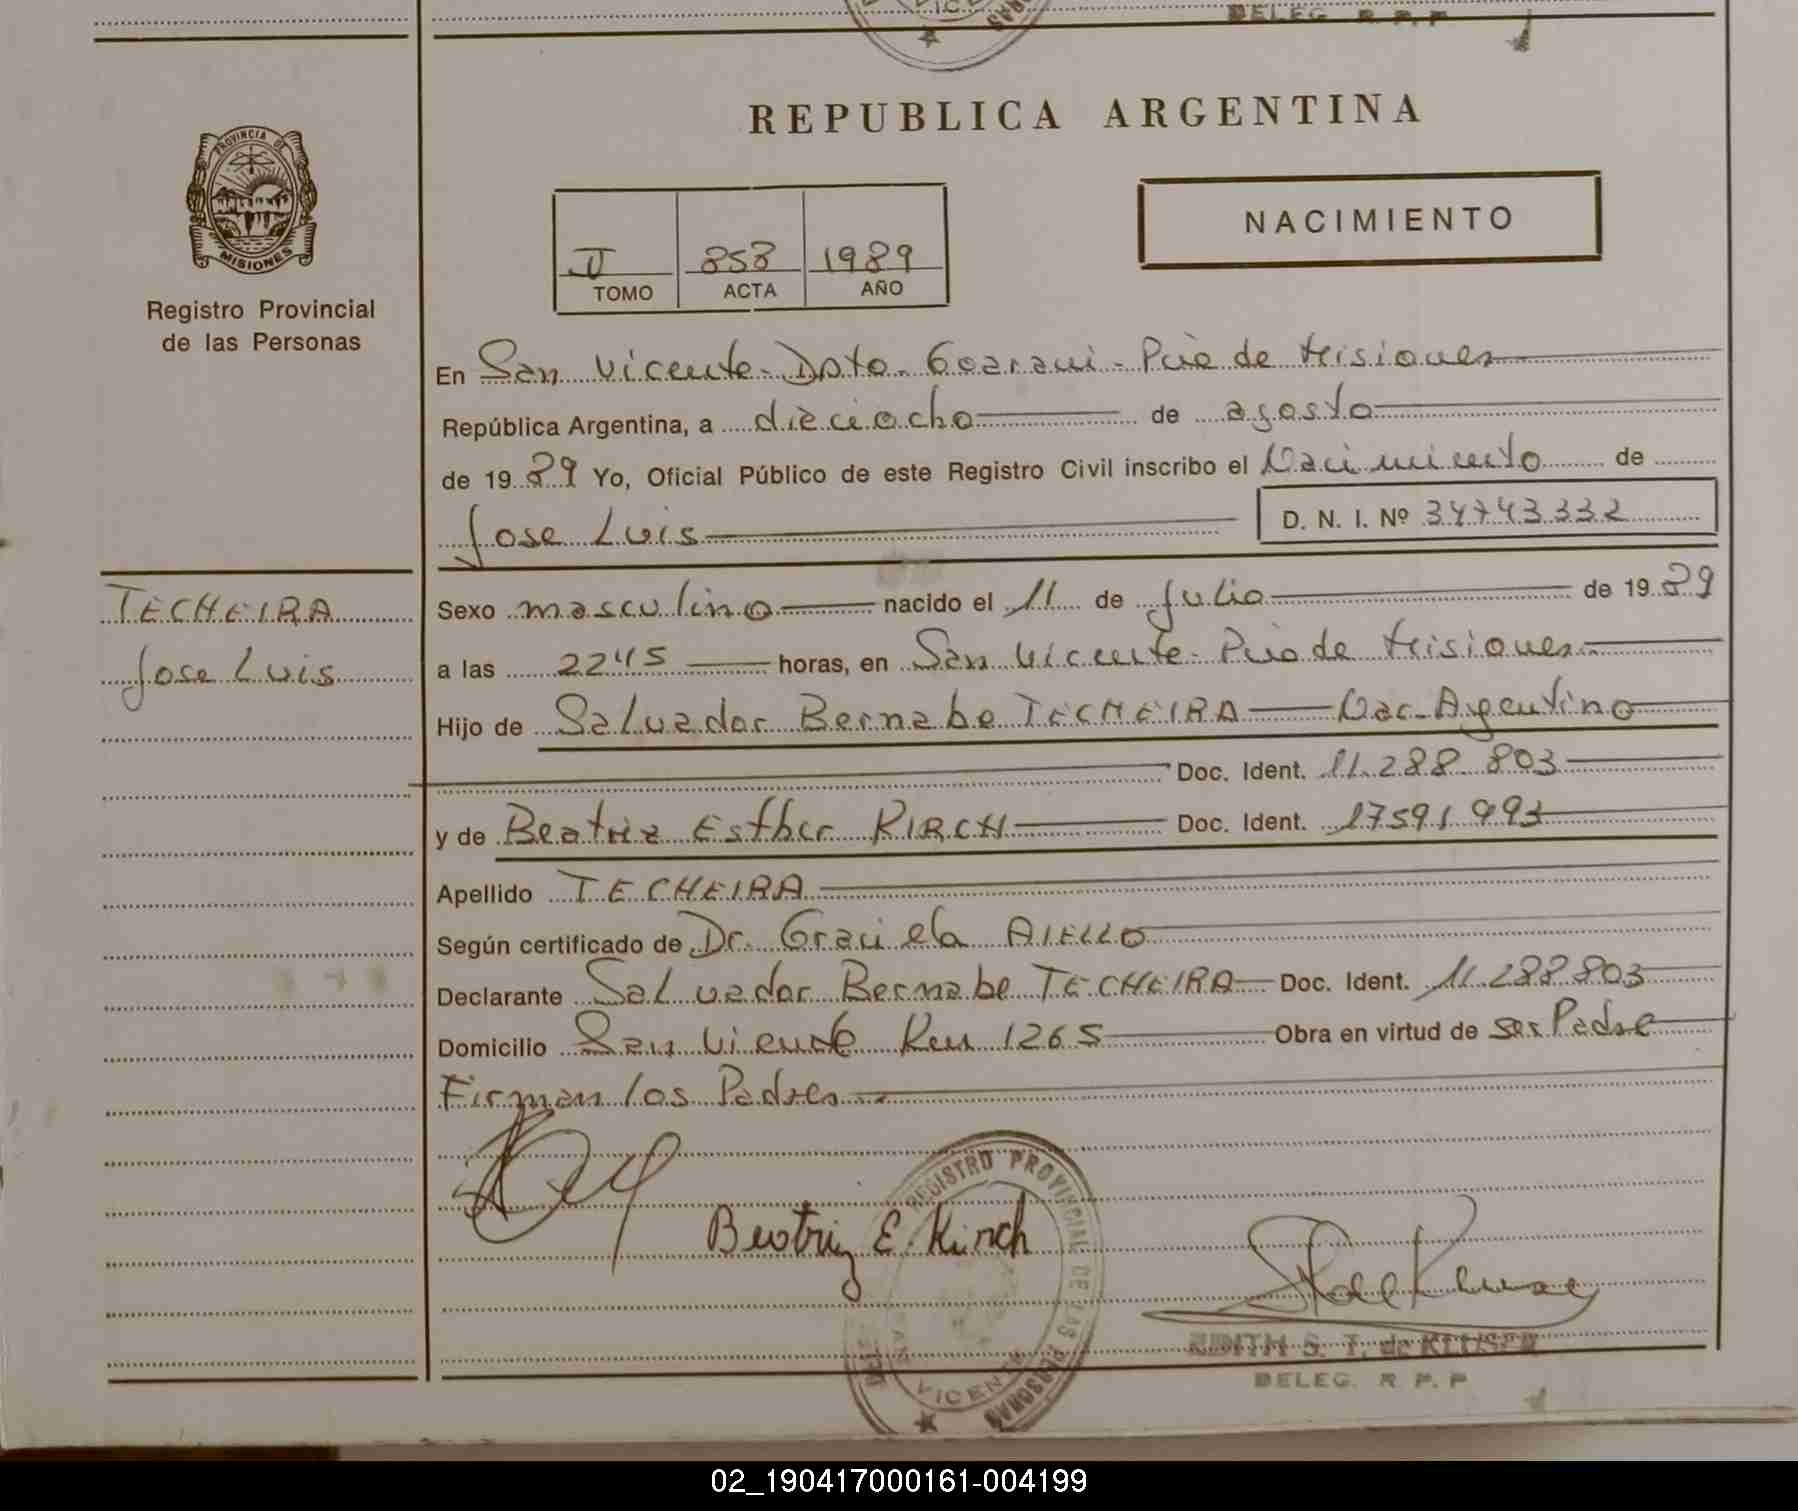 DELEG. R. P. P
REPUBLICA ARGENTINA
PROVINCIA DE
MISIONES
Registro Provincial
de las Personas
NACIMIENTO
II 858 1989
TOMO ACTA AÑO
En San Vicente - Dpto. Guarani - Pcia de Misiones
República Argentina, a dieciocho de agosto
de 1989 Yo, Oficial Público de este Registro Civil inscribo el Nacimiento de
Jose Luis D. N. I. Nº 34743332
TECHEIRA
Jose Luis
Sexo masculino nacido el 11 de Julio de 1989
a las 2245 horas, en San Vicente - Pcia de Misiones
Hijo de Salvador Bernabe TECHEIRA Nac. Argentino
Doc. Ident. 11.288.803
y de Beatriz Esther KIRCH Doc. Ident. 17591993
Apellido TECHEIRA
Según certificado de Dr. Graciela AIELLO
Declarante Salvador Bernabe TECHEIRA Doc. Ident. 11.288.803
Domicilio San Vicente Km 1265 Obra en virtud de ser Padre
Firman los Padres
Beatriz E. Kirch
REGISTRO PROVINCIAL DE LAS PERSONAS
SAN VICENTE
EDITH S. T. de KLUSER
DELEG. R. P. P
02_190417000161-004199